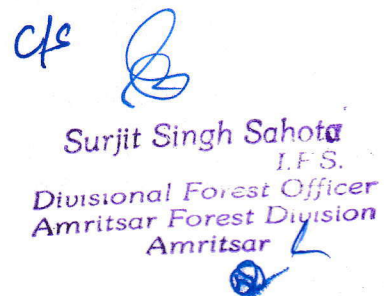 C/S
Surjit Singh Sahota
I.F.S.
Divisional Forest Officer
Amritsar Forest Division
Amritsar